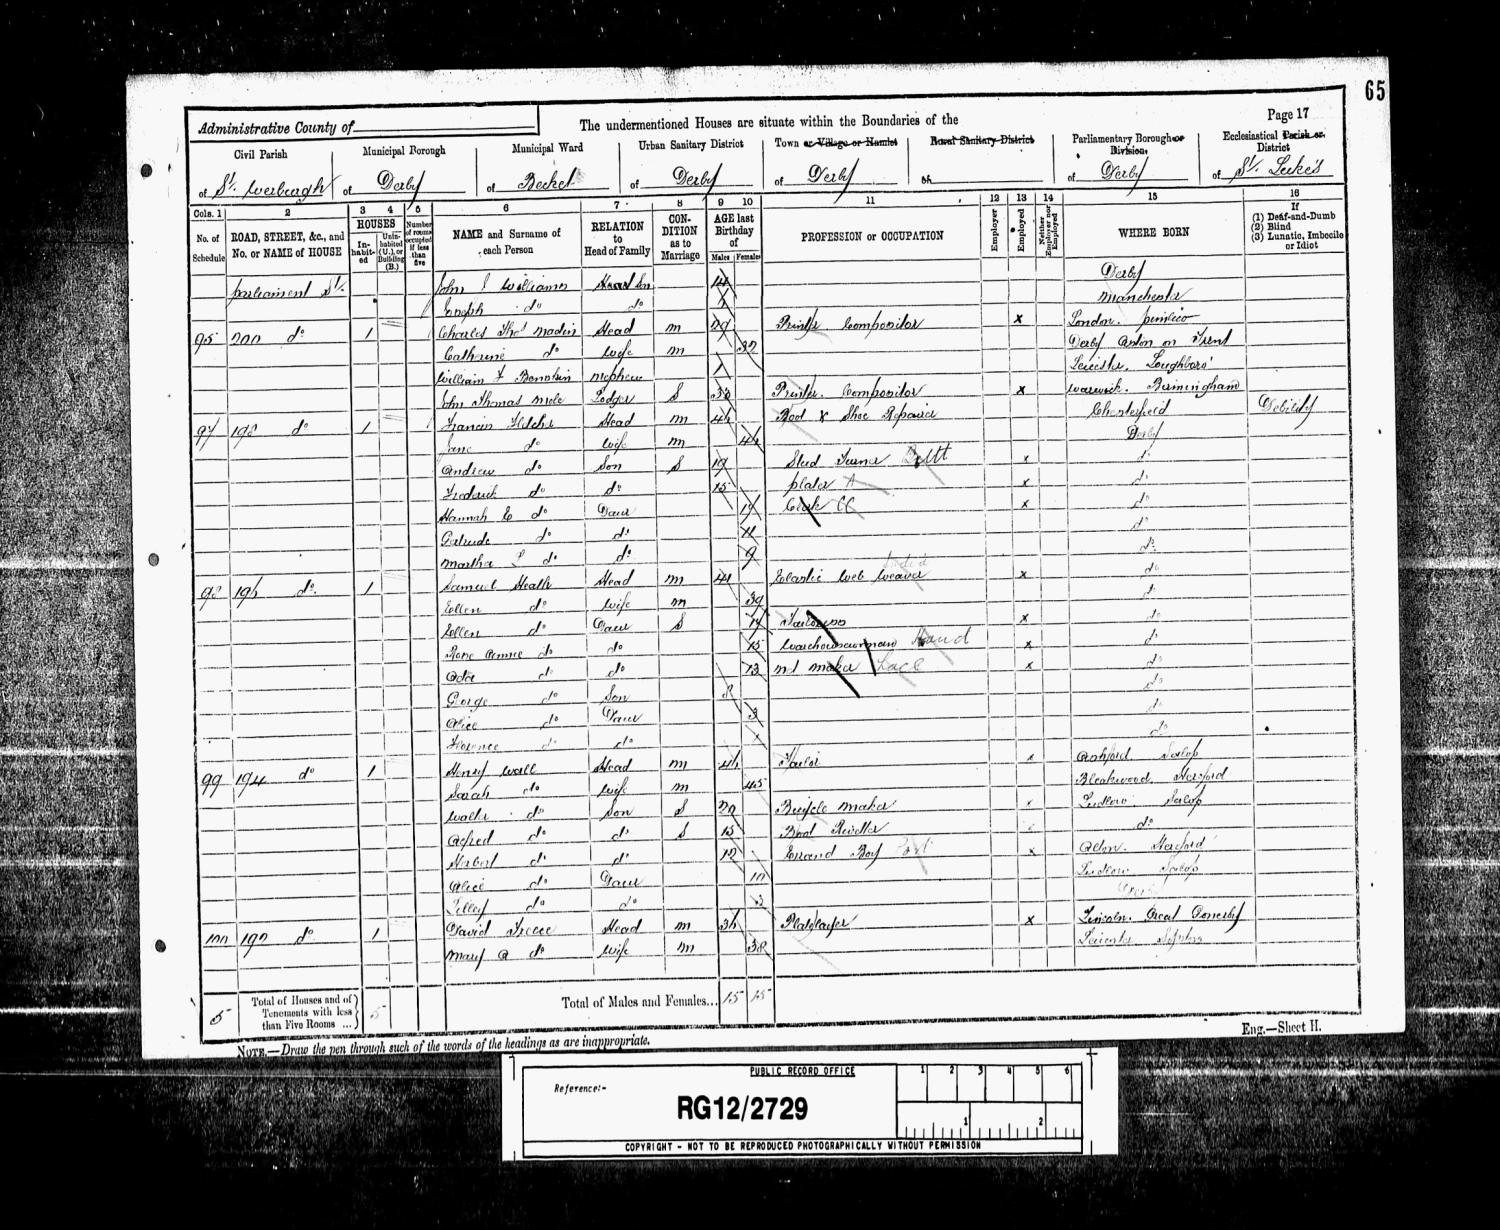 65
Administrative County of
The undermentioned Houses are situate within the Boundaries of the
Page 17
Civil Parish
Municipal Borough
Municipal Ward
Urban Sanitary District
Town or Village or Hamlet
Rural Sanitary District
Parliamentary Borough or Division
Ecclesiastical Parish or District
of St. Werburgh
of Derby
of Becket
of Derby
of Derby
of
of Derby
of St. Luke's
Cols. 1 2 3 4 5 6 7 8 9 10 11 12 13 14 15 16
No. of Schedule
ROAD, STREET, &c., and No. or NAME of HOUSE
HOUSES
In-habit-ed
Unin-habited (U.), or Building (B.)
Number of rooms occupied if less than five
NAME and Surname of each Person
RELATION to Head of Family
CON-DITION as to Marriage
AGE last Birthday of
Males Females
PROFESSION or OCCUPATION
Employer
Employed
Neither Employer nor Employed
WHERE BORN
If (1) Deaf-and-Dumb (2) Blind (3) Lunatic, Imbecile or Idiot
Parliament St. John Williams Son 14 Derby
Joseph do do Manchester
95 200 do 1 Charles Thos Madin Head M 29 Printer. Compositor x London. Pimlico
Catherine do Wife M 32 Derby Aston on Trent
William Nephew 1 Leicester. Loughboro'
John Thomas Mole Lodger S 33 Printer. Compositor x Warwick. Birmingham
97 198 do 1 Francis Fletcher Head M 46 Boot & Shoe Repairer Chesterfield Debility
Jane do Wife M 46 Derby
Andrew do Son S 19 Stud Turner x do
Frederick do do 15 Plater x do
Hannah E do Daur 17 Clerk CC x do
Gertrude do do 11 do
Martha L do do 9 do
98 196 do 1 Samuel Heath Head M 41 Elastic Web Weaver x do
Ellen do Wife M 39 do
Ellen do Daur S 17 Tailoress x do
Rose Annie do do 15 Warehousewoman Hand x do
Ada do do 13 Net Maker Lace x do
George do Son 8 do
Alice do Daur 3 do
Florence do do do
99 194 do 1 Henry Wall Head M 46 Tailor x Ashford. Salop
Sarah do Wife M 45 Hereford
Walter do Son S 20 Bicycle Maker x Ludlow. Salop
Alfred do do S 15 Boot Rivetter do
Herbert do do 12 Errand Boy x Hereford
Alice do Daur 10 Ludlow. Salop
Lilley do do 3 Derby
100 192 do 1 David Treece Head M 36 Platelayer x Lincoln. Great Gonerby
Mary A do Wife M 38 Leicester
5
Total of Houses and of Tenements with less than Five Rooms ...
5
Total of Males and Females... 15 15
NOTE.—Draw the pen through such of the words of the headings as are inappropriate.
Eng.—Sheet H.
PUBLIC RECORD OFFICE
Reference:-
RG12/2729
1 2 3 4 5 6
1 2
COPYRIGHT - NOT TO BE REPRODUCED PHOTOGRAPHICALLY WITHOUT PERMISSION